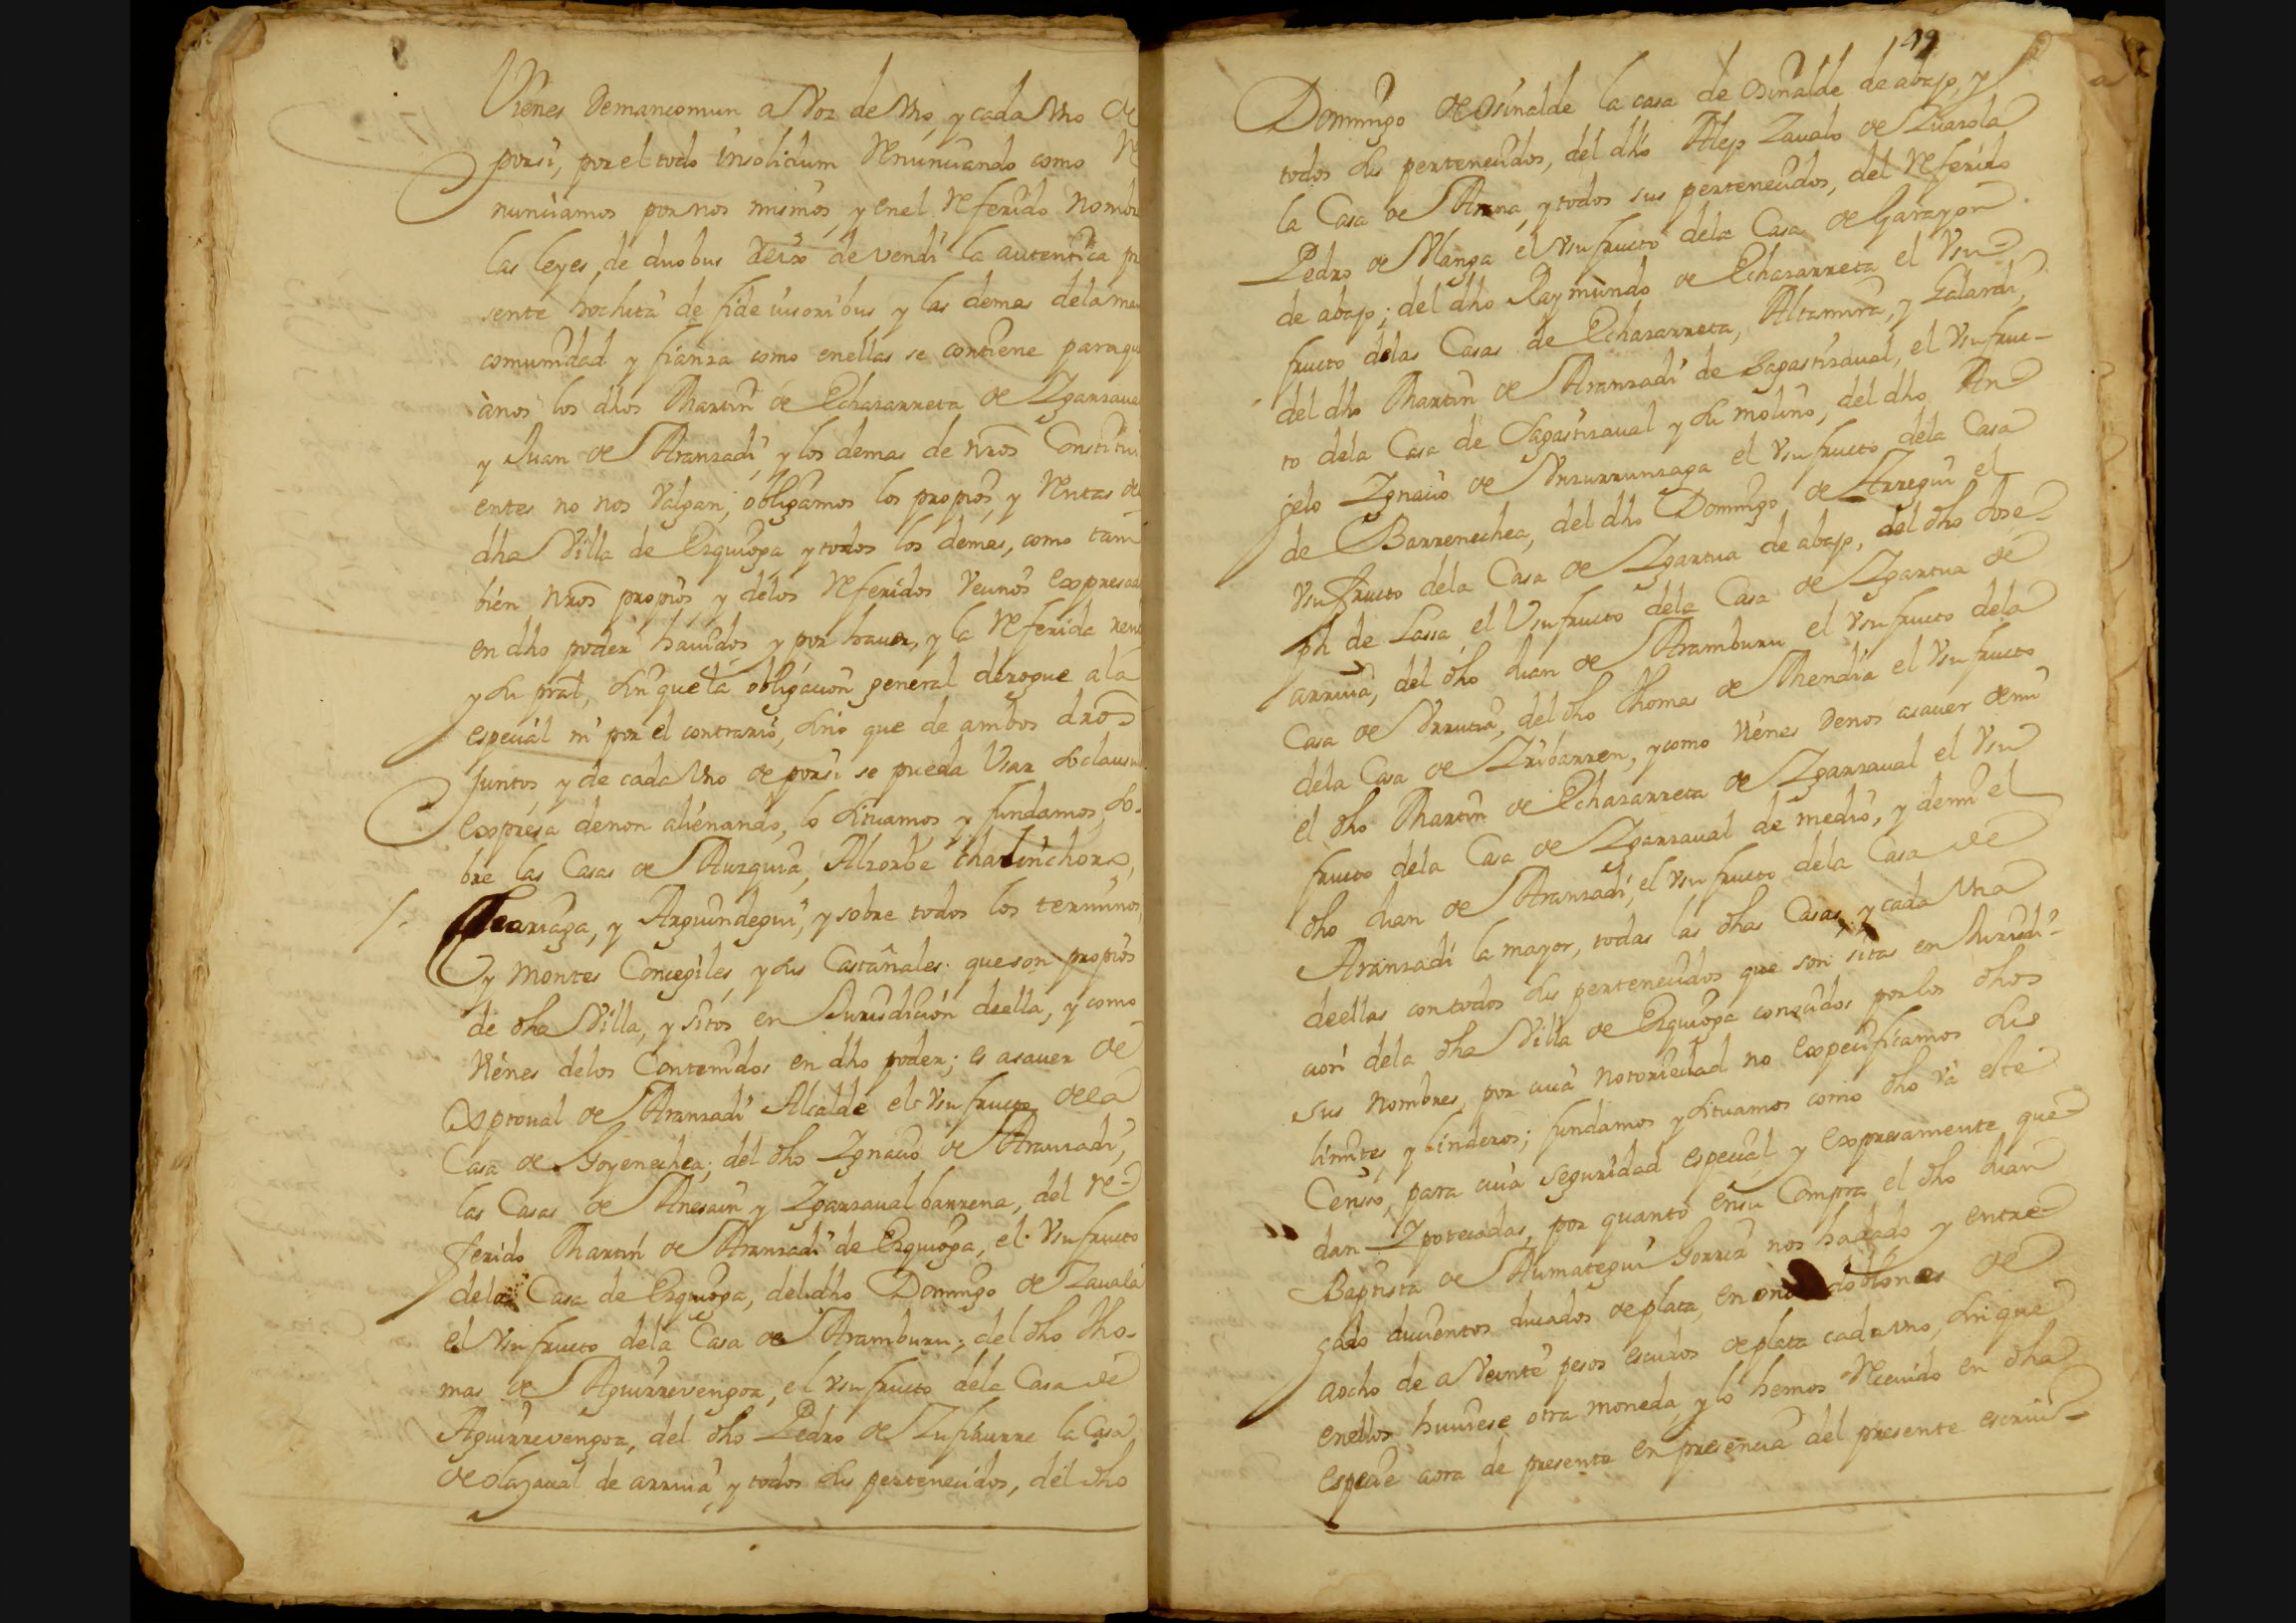 Vienes demancomun a Voz de Vno, y cada Vno de
porsi, por el todo insolidum Renunciando como Re
nunciamos por nos mismos, y en el Referido nombr
las leyes de duobus Reix de vendi la autentica pre
sente hochita de fide iusoribus y las demas dela man
comunidad y fianza como enellas se contiene paraque
à nos los dhos Martin de Echazarreta de Ygarzaual
y Juan de Aranzadi, y los demas de nros Constitui
entes no nos Valgan; obligamos los propios, y Rentas de
dha Villa de Ezquioga, y todos los demas, como tam
bien nros propios y delos Referidos Vecinos Expresad
en dho poder hauidos y por hauer, y la Referida ren
y su pral, sin que la obligacion general derogue ala
especial ni por el contrario, sino que de ambos dros
Juntos, y de cada Vno de porsi se pueda Vsar so clausul
Expresa denon alienando, lo situamos y fundamos so-
bre las Casas de Auzquia, Alzorbe chatinchora,
y Arguindegui, y sobre todos los terminos,
y Montes Concegiles, y sus Castañales. que son propios
de dha Villa, y sitos en Jurisdicion deella, y como
Vienes delos Contenidos en dho poder; es asauer de
Xptoual de Aranzadi Alcalde el Vsufructo dela
Casa de Goyenechea; del dho Ygnacio de Aranzadi,
las Casas de Anesain y Ygarzaual barrena, del re-
ferido Martin de Aranzadi de Ezquioga, el Vsufructo
dela Casa de Ezquioga, del dho Domingo de Zauala
el Vsufructo dela Casa de Aramburu; del dho Tho-
mas de Aguirrevengoa, el Vsufructo dela Casa de
Aguirrevengoa, del dho Pedro de Zufiaurre la Casa
de Olazaual de arriua, y todos sus pertenecidos, del dho
49
Domingo de Osinalde la casa de Osinalde de abajo, y
todos sus pertenecidos, del dho Alejo Zaualo de Zuarola
la Casa de Arana, y todos sus pertenecidos, del Referido
Pedro de Vlanga el Vsufructo dela Casa de Garayoa
de abajo; del dho Raymundo de Echazarreta el Vsu-
fructo delas Casas de Echazarreta, Altamira, y Galardi,
del dho Martin de Aranzadi de Sagastizaual, el Vsufruc-
to dela Casa de Sagastizaual y su molino, del dho An
jelo Ygnacio de Vrzurrunzaga el Vsufructo dela Casa
de Barrenechea, del dho Domingo de Arregui el
Vsufructo dela Casa de Ygartua de abajo, del dho Jose-
ph de Lassa, el Vsufructo dela Casa de Ygartua de
arriua, del dho Juan de Aramburu el Vsufructo dela
Casa de Vrrutia, del dho Thomas de Mendia el Vsufructo
dela Casa de Yribarren, y como Vienes denos asauer demi
el dho Martin de Echazarreta de Ygarzaual el Vsu
fructo dela Casa de Ygarzaual de medio, y demi el
dho Juan de Aranzadi, el Vsufructo dela Casa de
Aranzadi la mayor, todas las dhas Casas, y cada Vna
deellas con todos sus pertenecidos que son sitas en Jurisdi-
cion dela dha Villa de Ezquioga conocidos por los dhos
sus nombres, por cuia notoriedad no expecificamos sus
limites, y linderos; fundamos y situamos como dho va este
Censo, para cuia seguridad especial, y Expresamente que
dan Ypotecadas, por quanto ensu Compra el dho Juan
Baptista de Aumategui Gorria nos hadado y entre
gado ducientos ducados de plata, en doblones de
aocho de a Veinte pesos escudos de plata cada Vno, sin que
enellos huuiese otra moneda, y lo hemos Receuido en dha
especie aora de presente en presencia del presente escriu-